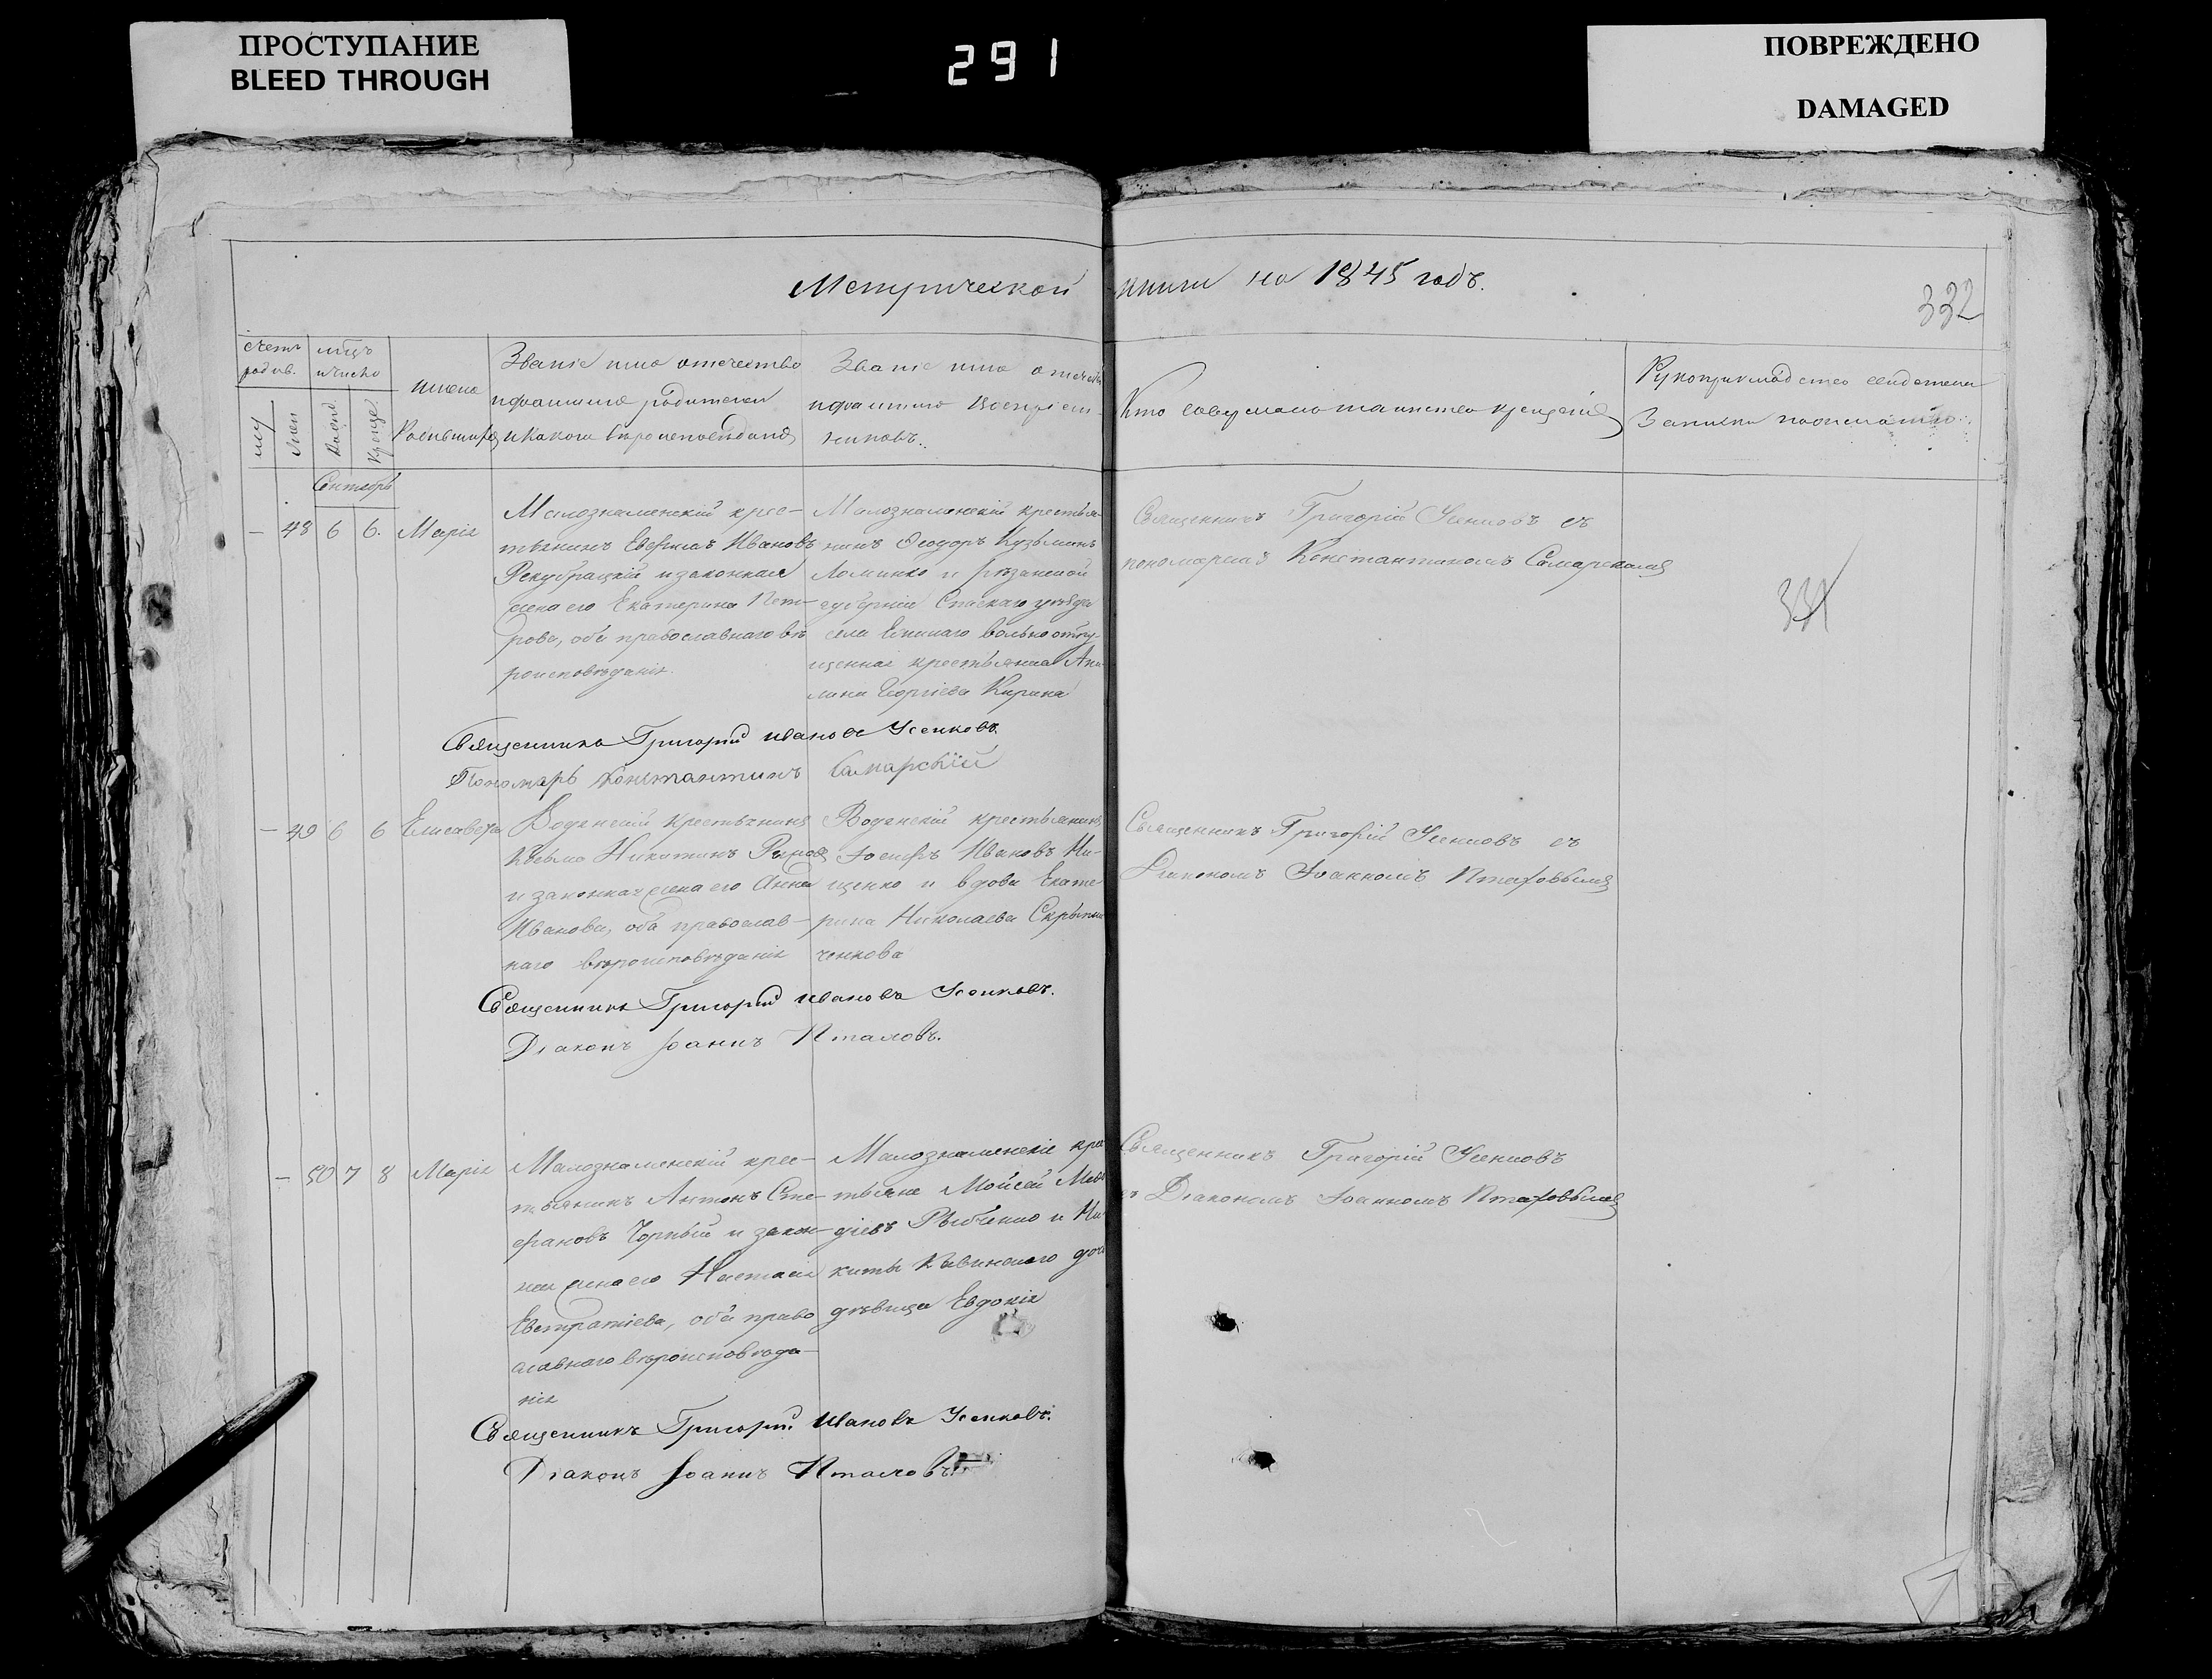 ПРОСТУПАНИЕ
BLEED THROUGH
291
ПОВРЕЖДЕНО
DAMAGED
Метрической книги на 1845 годъ.
332
счетъ родив.
мѣсъ и число
имена
Званіе имя отечество
и фамилія родителей
Званіе имя отечест
и фамилія воспріем-
никовъ.
Кто совершалъ таинство крещенія
Рукоприкладство свидетелей
Записки по
Сентябрь
— 48 6 6. Марія
Малознаменскій крес-
тьянинъ Ивановъ
и законная
жена его Екатерина Пет-
рова, оба православнаго вѣ
роисповѣданія.
Малознаменскій крестья-
нинъ Ѳеодоръ Кузьминъ
Ломинко и рязанской
губерніи Спаскаго уѣзда
села вольноотпу-
щенная крестьянка Аку-
лина Георгіева Кирина
Священникъ Григорій Усенковъ съ
пономаремъ Константиномъ Самарскимъ
331
Священникъ Григорій Ивановъ Усенковъ.
Пономарь Константинъ Самарскій
— 49 6 6 Елисавета
Водянскій крестьянинъ
Косьма Никитинъ
и законная жена его Анна
Иванова, оба православ-
наго вѣроисповѣданія
Водянскій крестьянинъ
Іосифъ Ивановъ Ни-
щенко и вдова Екате-
рина Николаева Скрыпни
ченкова
Священникъ Григорій Усенковъ съ
Діакономъ Іоанномъ Птаховымъ
Священникъ Григорий Ивановъ Усенковъ.
Діаконъ Іоаннъ Птаховъ.
— 50 7 8 Марія
Малознаменскій крес-
тьянинъ Антонъ Сте-
фановъ Чорный и закон-
ная жена его Настасія
Евстратіева, оба право
славнаго вѣроисповѣда-
нія
Малознаменскіе крес
тьяне Мойсей
Рябченко и Ни-
киты доч
дѣвица Евдокія
Священникъ Григорій Усенковъ
съ Діакономъ Іоанномъ Птаховымъ
Священникъ Григорій Ивановъ Усенковъ.
Діаконъ Іоаннъ Птаховъ